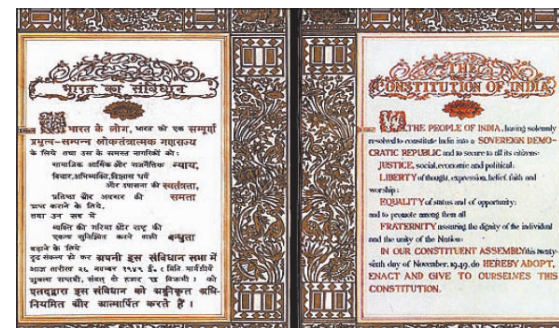 भारत का संविधान
हम भारत के लोग, भारत को एक सम्पूर्ण
प्रभुत्व-सम्पन्न लोकतंत्रात्मक गणराज्य
के लिये तथा उस के समस्त नागरिकों को:
सामाजिक आर्थिक और राजनैतिक न्याय,
विचार, अभिव्यक्ति, विश्वास धर्म
और उपासना की स्वतंत्रता,
प्रतिष्ठा और अवसर की समता
प्राप्त कराने के लिये,
तथा उन सब में
व्यक्ति की गरिमा और राष्ट्र की
एकता सुनिश्चित करने वाली बन्धुता
बढ़ाने के लिये
दृढ़ संकल्प हो कर अपनी इस संविधान सभा में
आज तारीख २६ नवम्बर १९४९ ई॰ ( मिति मार्गशीर्ष
शुक्ला सप्तमी, संवत् दो हजार छः विक्रमी ) को
एतद्द्वारा इस संविधान को अङ्गीकृत अधि-
नियमित और आत्मार्पित करते हैं।
THE
CONSTITUTION OF INDIA
WE, THE PEOPLE OF INDIA, having solemnly
resolved to constitute India into a SOVEREIGN DEMO-
CRATIC REPUBLIC and to secure to all its citizens:
JUSTICE, social, economic and political;
LIBERTY of thought, expression, belief, faith and
worship;
EQUALITY of status and of opportunity;
and to promote among them all
FRATERNITY assuring the dignity of the individual
and the unity of the Nation;
IN OUR CONSTITUENT ASSEMBLY this twenty-
sixth day of November, 1949, do HEREBY ADOPT,
ENACT AND GIVE TO OURSELVES THIS
CONSTITUTION.